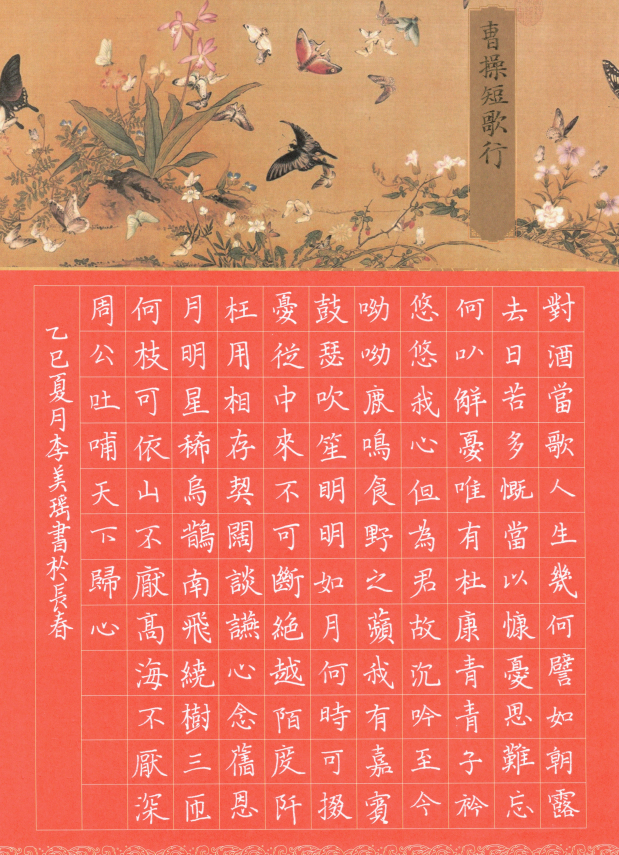 曹操短歌行
對酒當歌人生幾何譬如朝露
去日苦多慨當以慷憂思難忘
何㕥觧憂唯有杜康青青子衿
悠悠我心但為君故沉吟至今
呦呦鹿鳴食野之蘋我有嘉賓
鼓瑟吹笙明明如月何時可掇
憂從中來不可斷絕越陌度阡
枉用相存契闊談讌心念舊恩
月明星稀烏鵲南飛繞樹三匝
何枝可依山不厭高海不厭深
周公吐哺天下歸心
乙巳夏月李美瑤書於長春